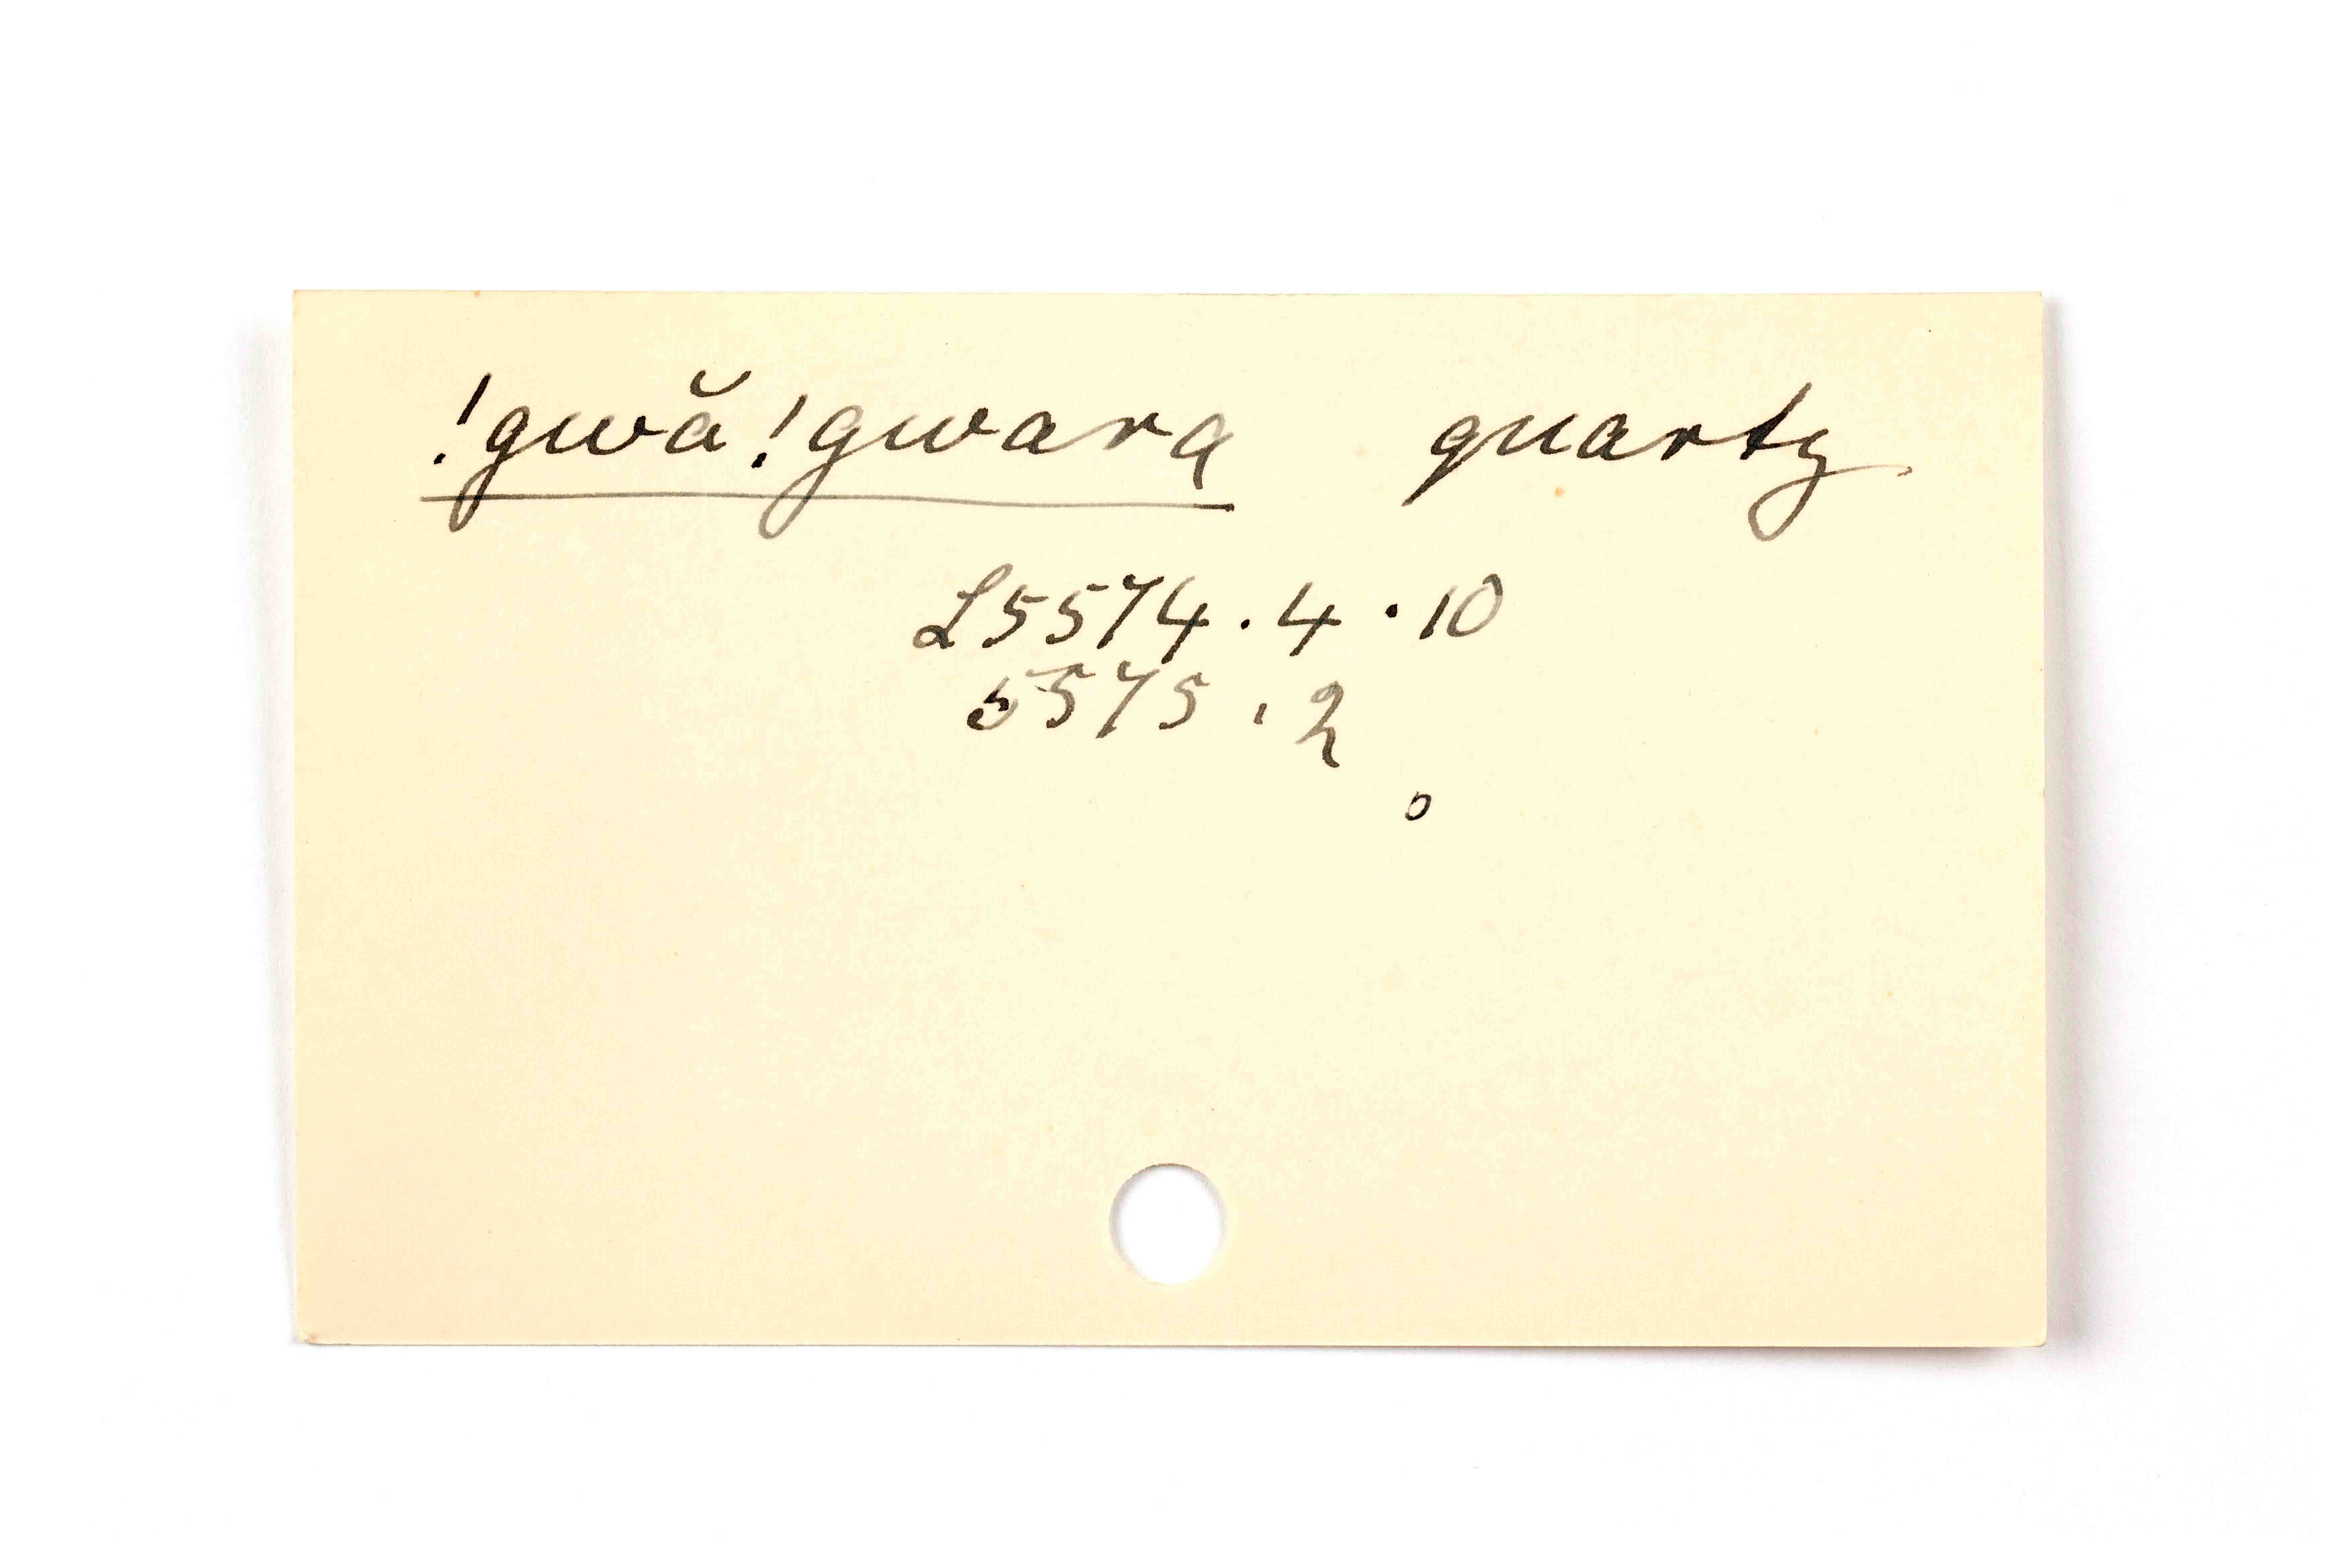 !gwă!gwara quartz
L5574.4.10
5575.2
o